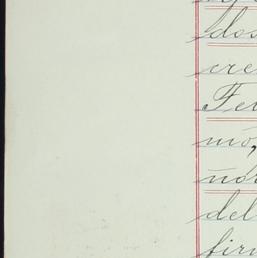 dos
cre
Fe
mo,
nor
del
fir